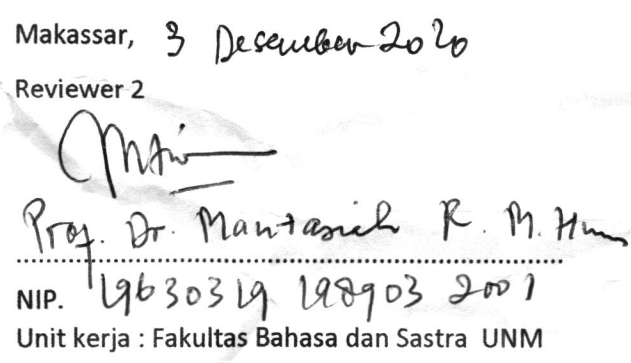 Makassar, 3 Desember 2020
Reviewer 2
Prof. Dr. Mantasiah R. M. Hum
NIP. 19630319 198903 2001
Unit kerja : Fakultas Bahasa dan Sastra UNM